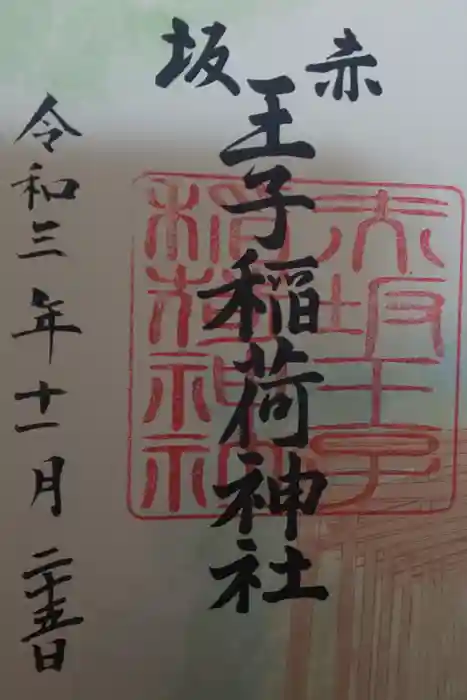 赤坂
王子稲荷神社
令和三年十一月二十五日
赤坂王子
稲荷神社